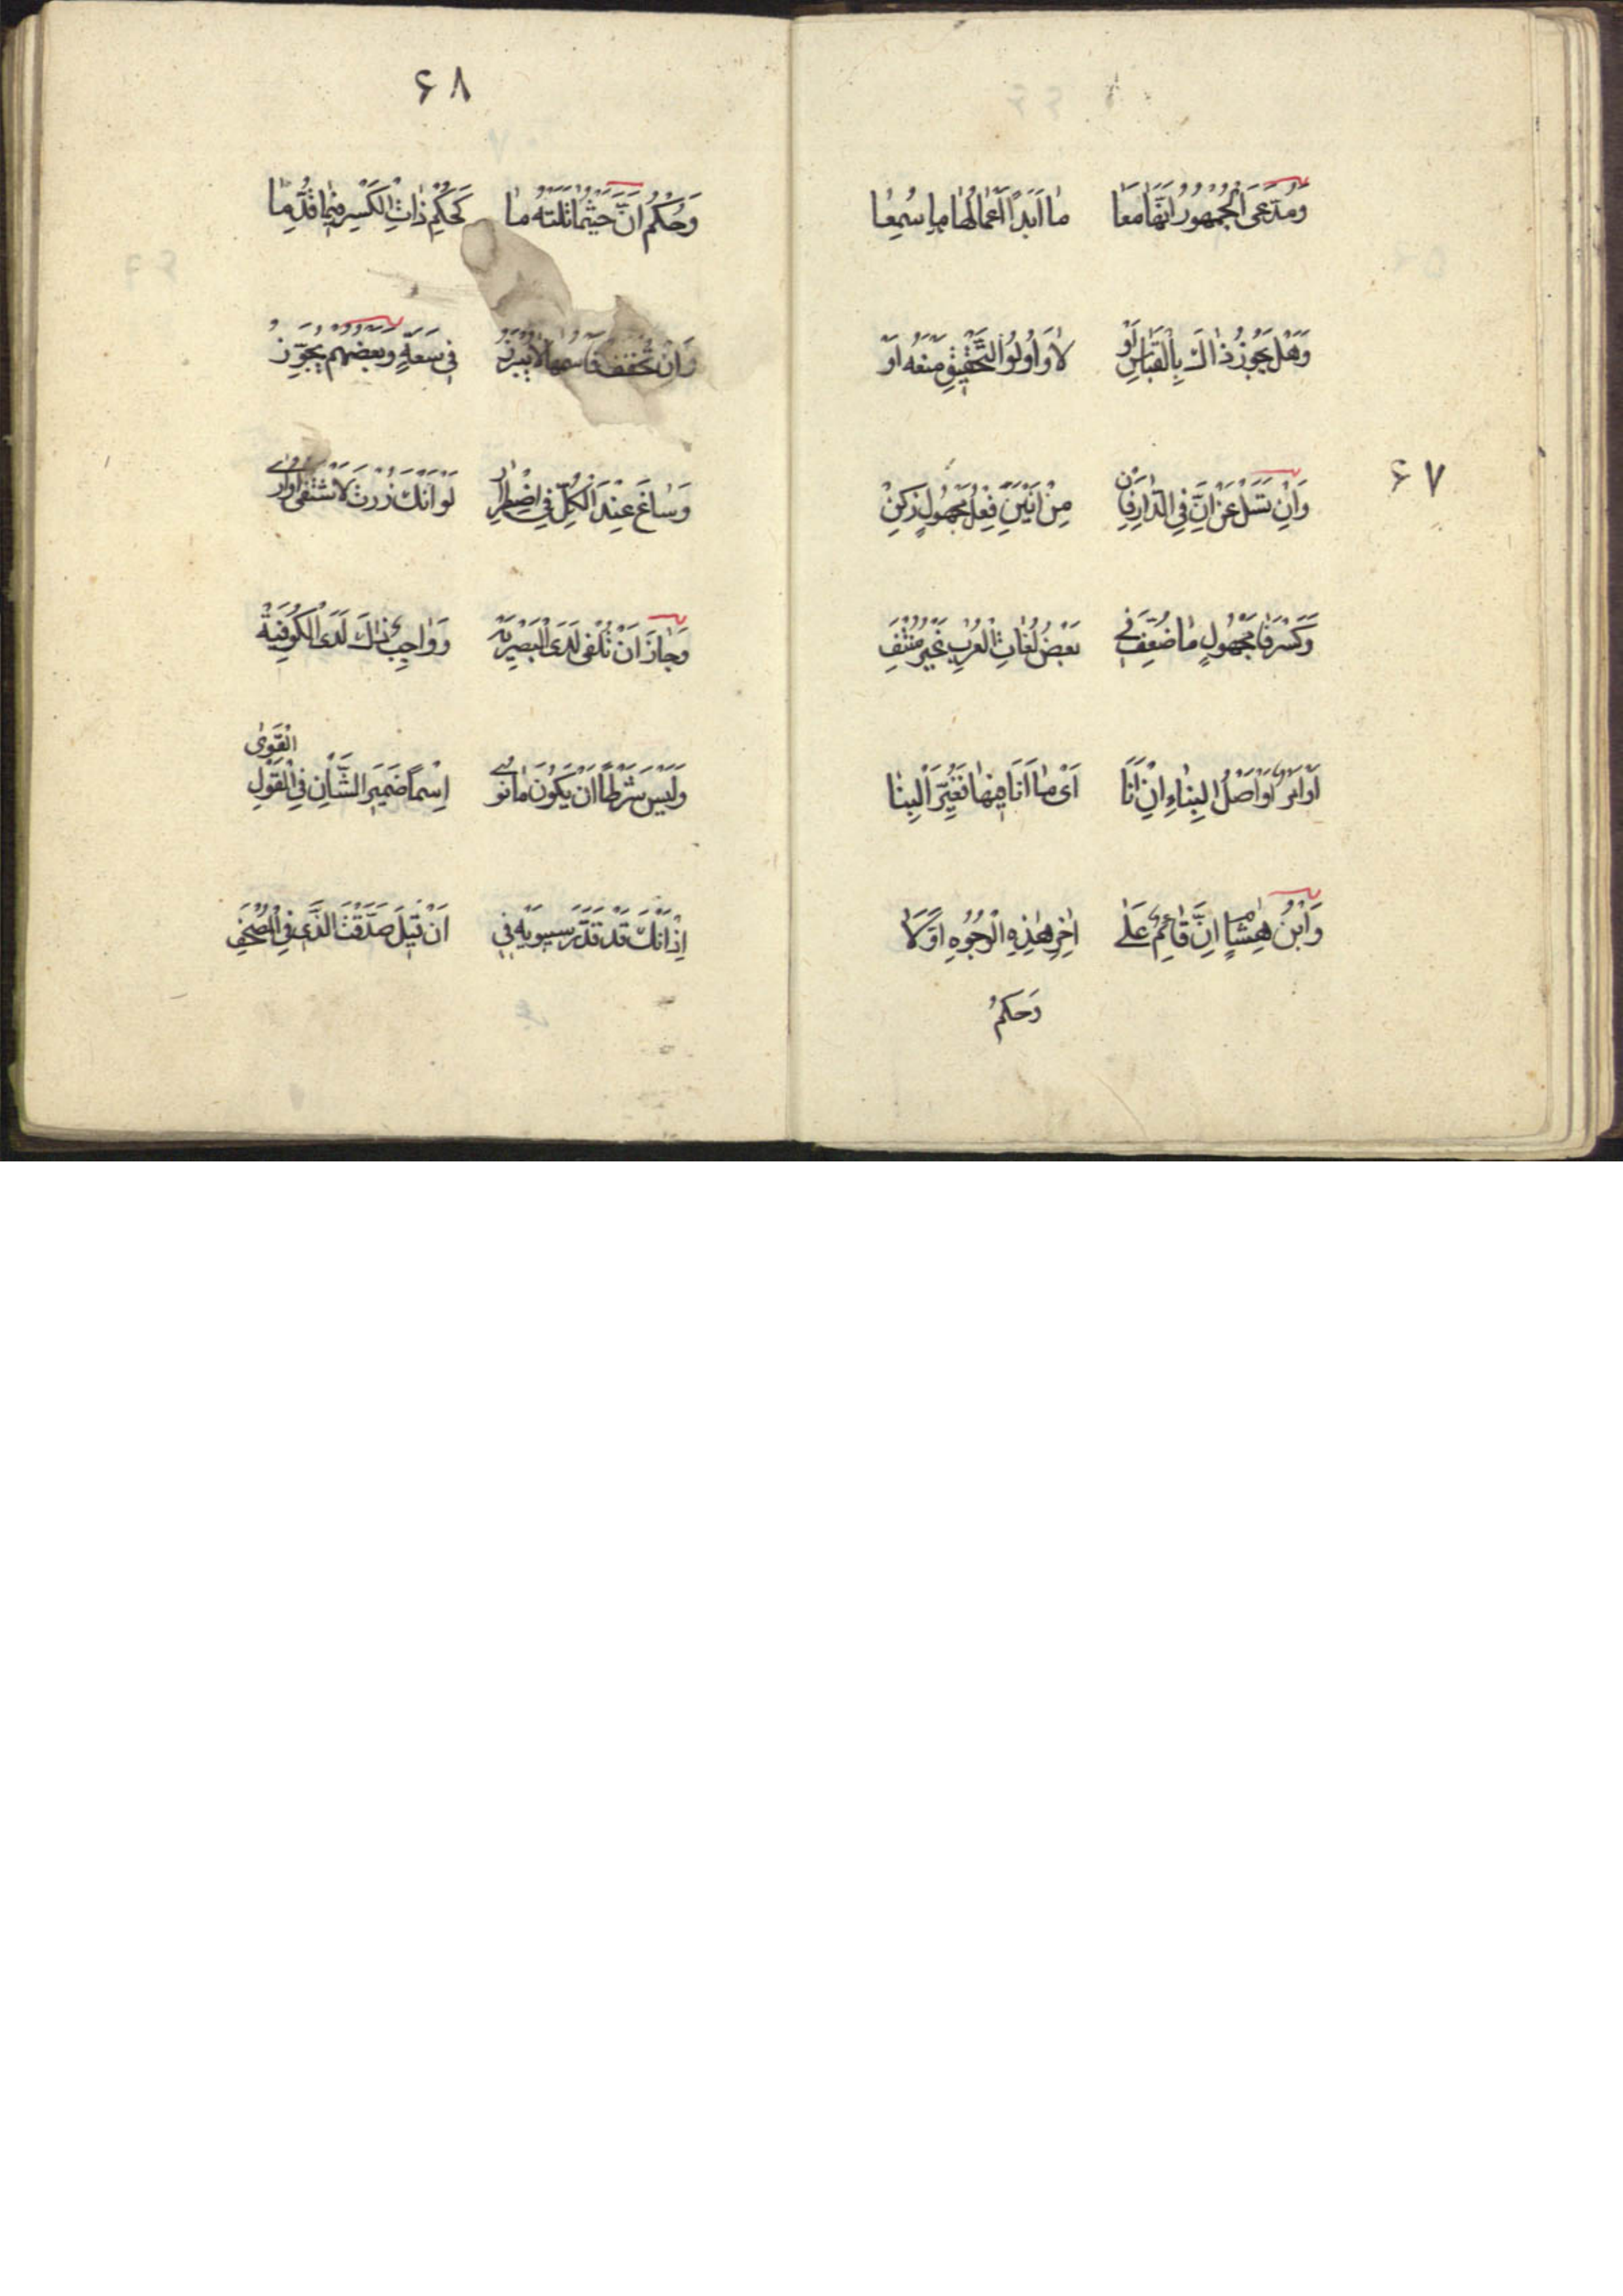 وَمُدَّعَى الْجُمْهُورِ أَنَّهَا مَعَا مَا أَبَدًا أَعْمَالُهَا مَا سُمِعَا
وَهَلْ يَجُوزُ ذَاكَ بِالْقِيَاسِ أَوْ لَا وَأُولُوا التَّحْقِيقِ مَنْعَهُ
۶۷
وَإِنْ تَسَلْ عَنْ إِنَّ فِي الدَّارِ مِنْ أَنِينٍ فِعْلُ مَجْهُولٍ زُكِنْ
وَكَسْرُ فَا مَجْهُولِ مَا ضُعِّفَ فِي بَعْضِ لُغَاتِ الْعُرْبِ غَيْرُ مُنْتَفِ
أَصْلُ الْبِنَاءِ إِنْ أَنَا أَيْ مَا أَنَا
وَابْنُ هِشَامٍ إِنَّ قَائِمٌ عَلَى آخِرِ هٰذِهِ الْوُجُوهِ أَوَّلَا
وَحُكْمُ
۶۸
وَحُكْمُ أَنَّ حَيْثُمَا تَلَتْهُ مَا كَحُكْمِ ذَاتِ الْكَسْرِ فِيمَا قُدِّمَا
وَإِنْ تُخَفَّفْ فَاسْمُهَا لَا يَبْرُزُ فِي سَعَةٍ وَبَعْضُهُمْ يُجَوِّزُ
وَسَاغَ عِنْدَ الْكُلِّ فِي اضْطِرَارِ لَوْ أَنْكَ زُرْتَ لَاشْتَفَى أُوَارِي
وَجَازَ أَنْ تُلْغَى لَدَى الْبَصْرِيَّهْ وَوَاجِبٌ ذٰلِكَ لَدَى الْكُوفِيَّهْ
وَلَيْسَ شَرْطًا أَنْ يَكُونَ مَا نُوِي إِسْمًا ضَمِيرَ الشَّأْنِ فِي الْقَوْلِ الْقَوِي
إِذْ أَنْكَ قَدْ قَدَّرَ سِيبَوَيْهِ فِي أَنْ قِيلَ صَدَّقْتَ الَّذِي فِي الْمُصْحَفِ